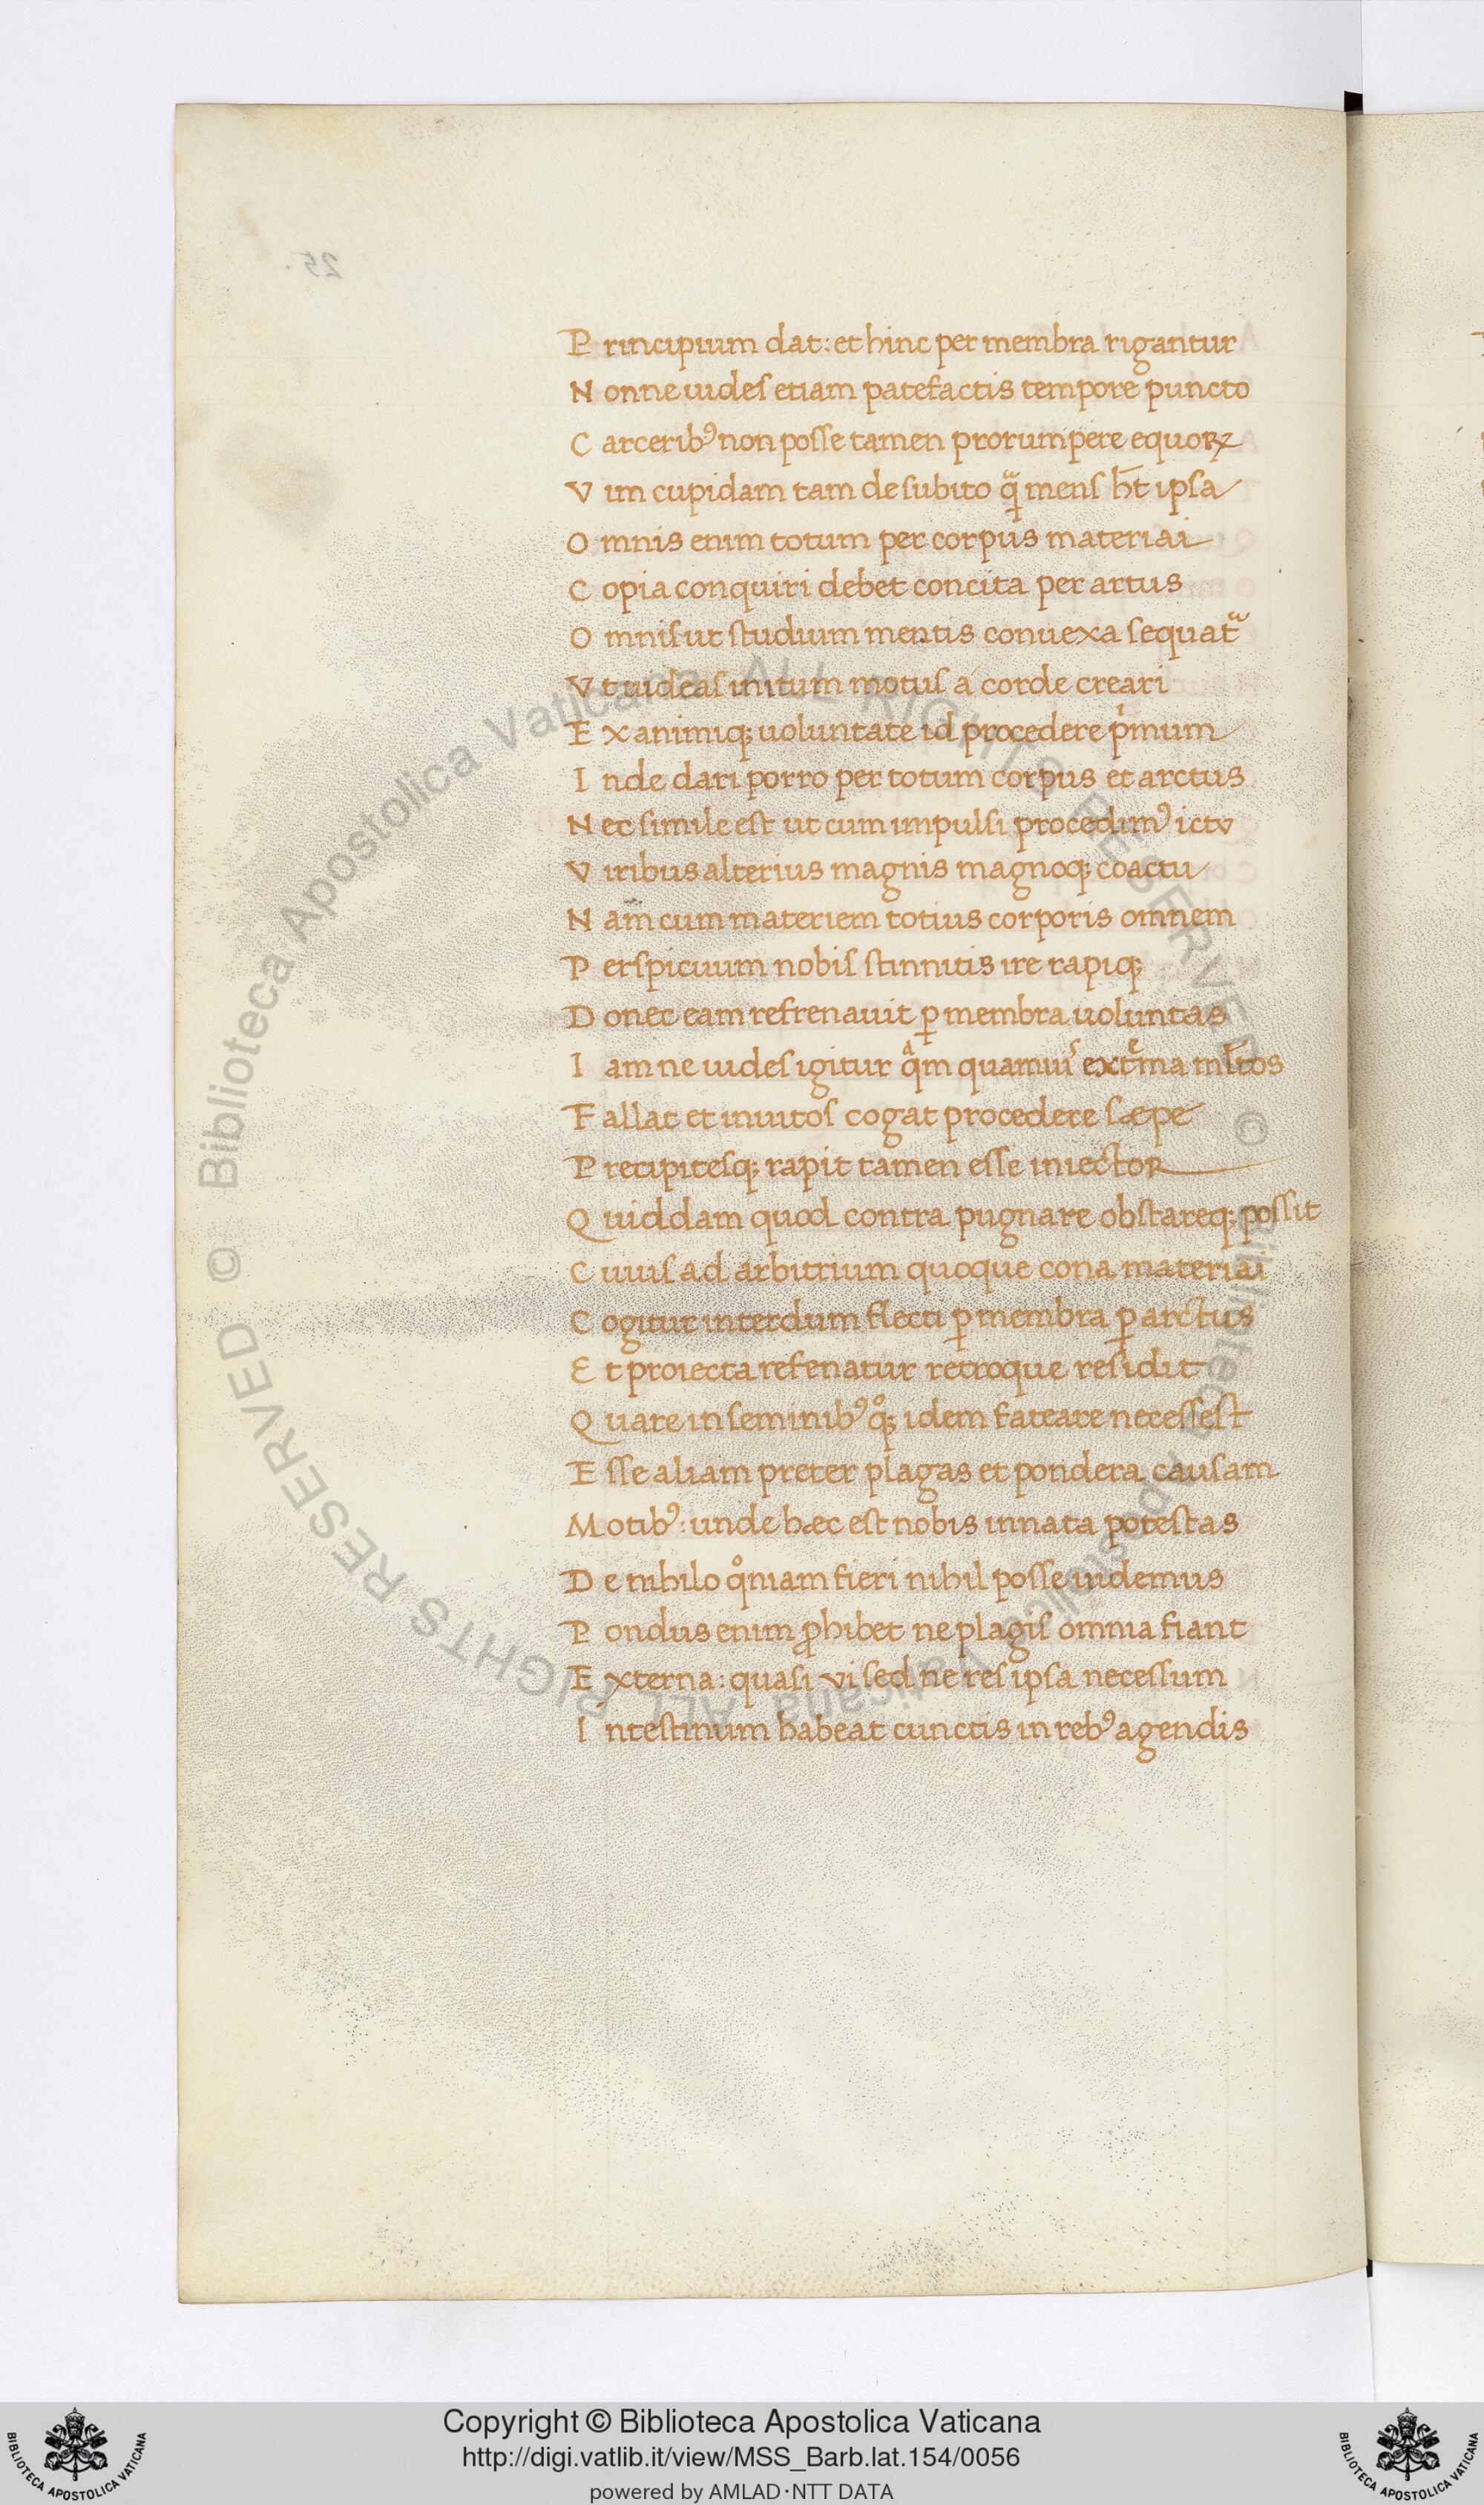 P rincipium dat: et hinc per membra rigantur
N onne uides etiam patefactis tempore puncto
C arceribꝰ non posse tamen prorumpere equoꝝ
V im cupidam tam de subito qᷓ mens ht̄ ipsa
O mnis enim totum per corpus materiai
C opia conquiri debet concita per artus
O mnis ut studium mentis conuexa sequatᷓ
V t uideas initum motus á corde creari
E x animiqꝫ uoluntate id procedere pͥmum
I nde dari porro per totum corpus et arctus
N ec simile est ut cum impulsi procedimꝰ ictv
V iribus alterius magnis magnoqꝫ coactu
N am cum materiem totius corporis omnem
P erspicuum nobis stinnitis ire rapiqꝫ
D onec eam refrenauit ꝑ membra uoluntas
I am ne uides igitur qᷓm quamuis extͤma ml̄tos
F allat et inuitos cogat procedere sæpe
P recipitesqꝫ rapit tamen esse in iector
Q uiddam quod contra pugnare obstareqꝫ possit
C uuis ad arbitrium quoque cona materiai
C ogitur interdum flecti ꝑ membra ꝑ arctus
E t proiecta refenatur retroque residit
Q uare in seminibꝰ qͦqꝫ idem fateare necessest
E sse aliam preter plagas et pondera causam
M otibꝰ: unde hæc est nobis innata potestas
D e nihilo qͦniam fieri nihil posse uidemus
P ondus enim ꝓhibet ne plagis omnia fiant
E xterna: quasi vi sed ne res ipsa necessum
I ntestinum habeat cunctis in rebꝰ agendis
25.
© Biblioteca Apostolica Vaticana ALL RIGHTS RESERVED
© Biblioteca Apostolica Vaticana ALL RIGHTS RESERVED
Copyright © Biblioteca Apostolica Vaticana
http://digi.vatlib.it/view/MSS_Barb.lat.154/0056
powered by AMLAD·NTT DATA
BIBLIOTECA APOSTOLICA VATICANA
BIBLIOTECA APOSTOLICA VATICANA